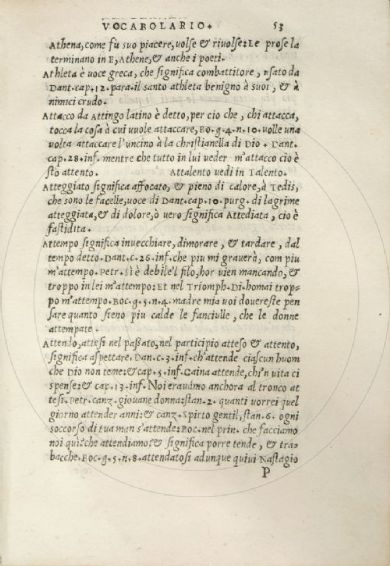 VOCABOLARIO. 53
Athena, come fu suo piacere, uolse & riuolse: Le prose la
terminano in E, Athene, & anche i poeti.
Athleta è uoce greca, che significa combattitore, usato da
Dant. cap. 12. para. il santo athleta benigno à suoi, & à
nimici crudo.
Attacco da Attingo latino è detto, per cio che, chi attacca,
tocca la cosa à cui uuole attaccare, Bo. g. 4. n. 10. uolle una
uolta attaccare l'uncino à la christianella di Dio. Dant.
cap. 28. inf. mentre che tutto in lui ueder m'attacco cio è
sto attento. Attalento uedi in Talento.
Atteggiato significa affocato, & pieno di calore, à Tedis,
che sono le facelle, uoce di Dant. cap. 10. purg. di lagrime
atteggiata, & di dolore, ò uero significa Attediata, cio è
fastidita.
Attempo significa inuecchiare, dimorare, & tardare, dal
tempo detto. Dant. c. 26. inf. che piu mi grauerà, com piu
m'attempo. Petr. si è debile'l filo, hor uien mancando, &
troppo in lei m'attempo: Et nel Triomph. Di homai trop-
po m'attempo. Boc. g. 5. n. 4. madre mia uoi douereste pen
sare quanto sieno piu calde le fanciulle, che le donne
attempate.
Attendo, attesi nel passato, nel participio atteso & attento,
significa aspettare. Dan. c. 3. inf. ch'attende ciascun huom
che Dio non teme: & cap. 5. inf. Caina attende, chi'n uita ci
spense: & cap. 13. inf. Noi erauamo anchora al tronco at
tesi. Petr. canz. giouane donna: stan. 2. quanti uorrei quel
giorno attender anni: & canz. Spirto gentil, stan. 6. ogni
soccorso di tua man s'attende: Boc. nel prin. che facciamo
noi qui: che attendiamo: & significa porre tende, & tra-
bacche. Boc. g. 5. n. 8. attendatosi adunque quiui Nastagio
P